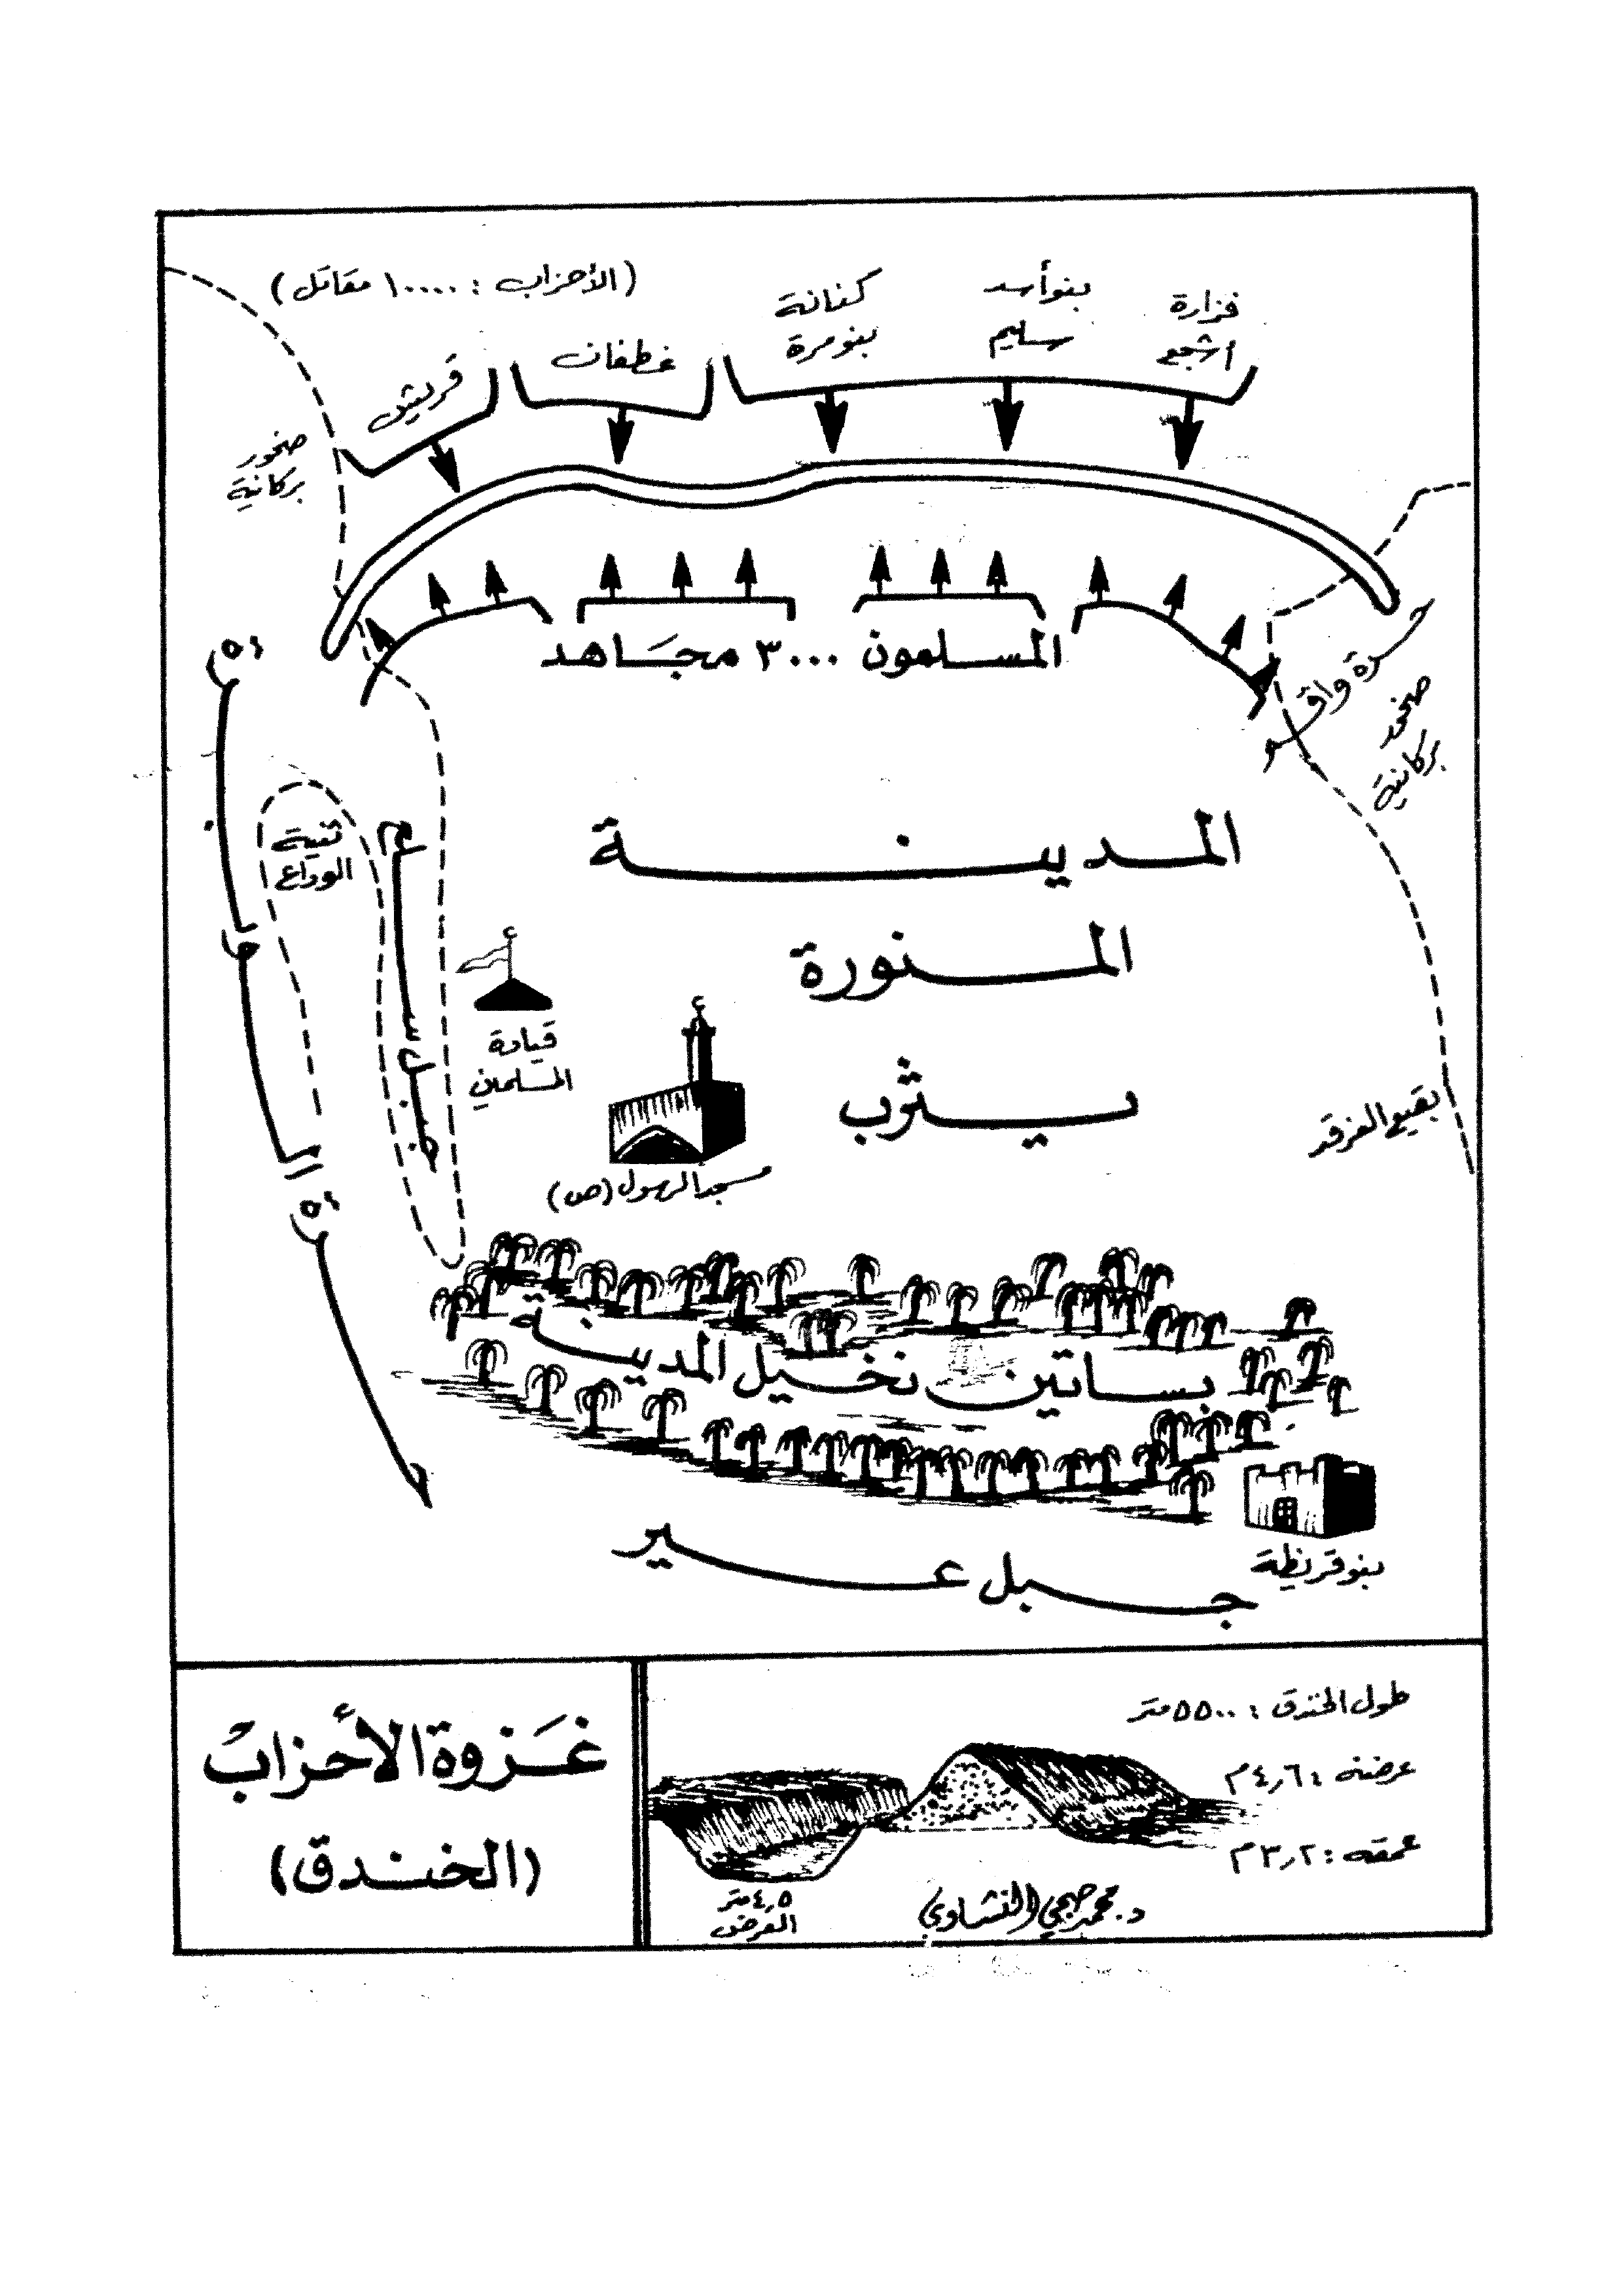 (الأحزاب : ١٠٠٠٠ مقاتل)
قريش
غطفان
كنانة
بنو مرة
بنو أسد
سليم
فزارة
أشجع
صخور
بركانية
المسلمون ٣٠٠٠ مجاهد
حرة واقم
صخور
بركانية
حرة الوبرة
ثنية
الوداع
جبل سلع
المدينة
المنورة
يثرب
قيادة
المسلمين
مسجد الرسول (ص)
بقيع الغرقد
بساتين نخيل المدينة
بنو قريظة
جبل عير
غزوة الأحزاب
(الخندق)
طول الخندق : ٥٥٠٠ متر
عرضه : ٤,٦ م
عمقه : ٣,٢ م
٤,٥ متر
العرض